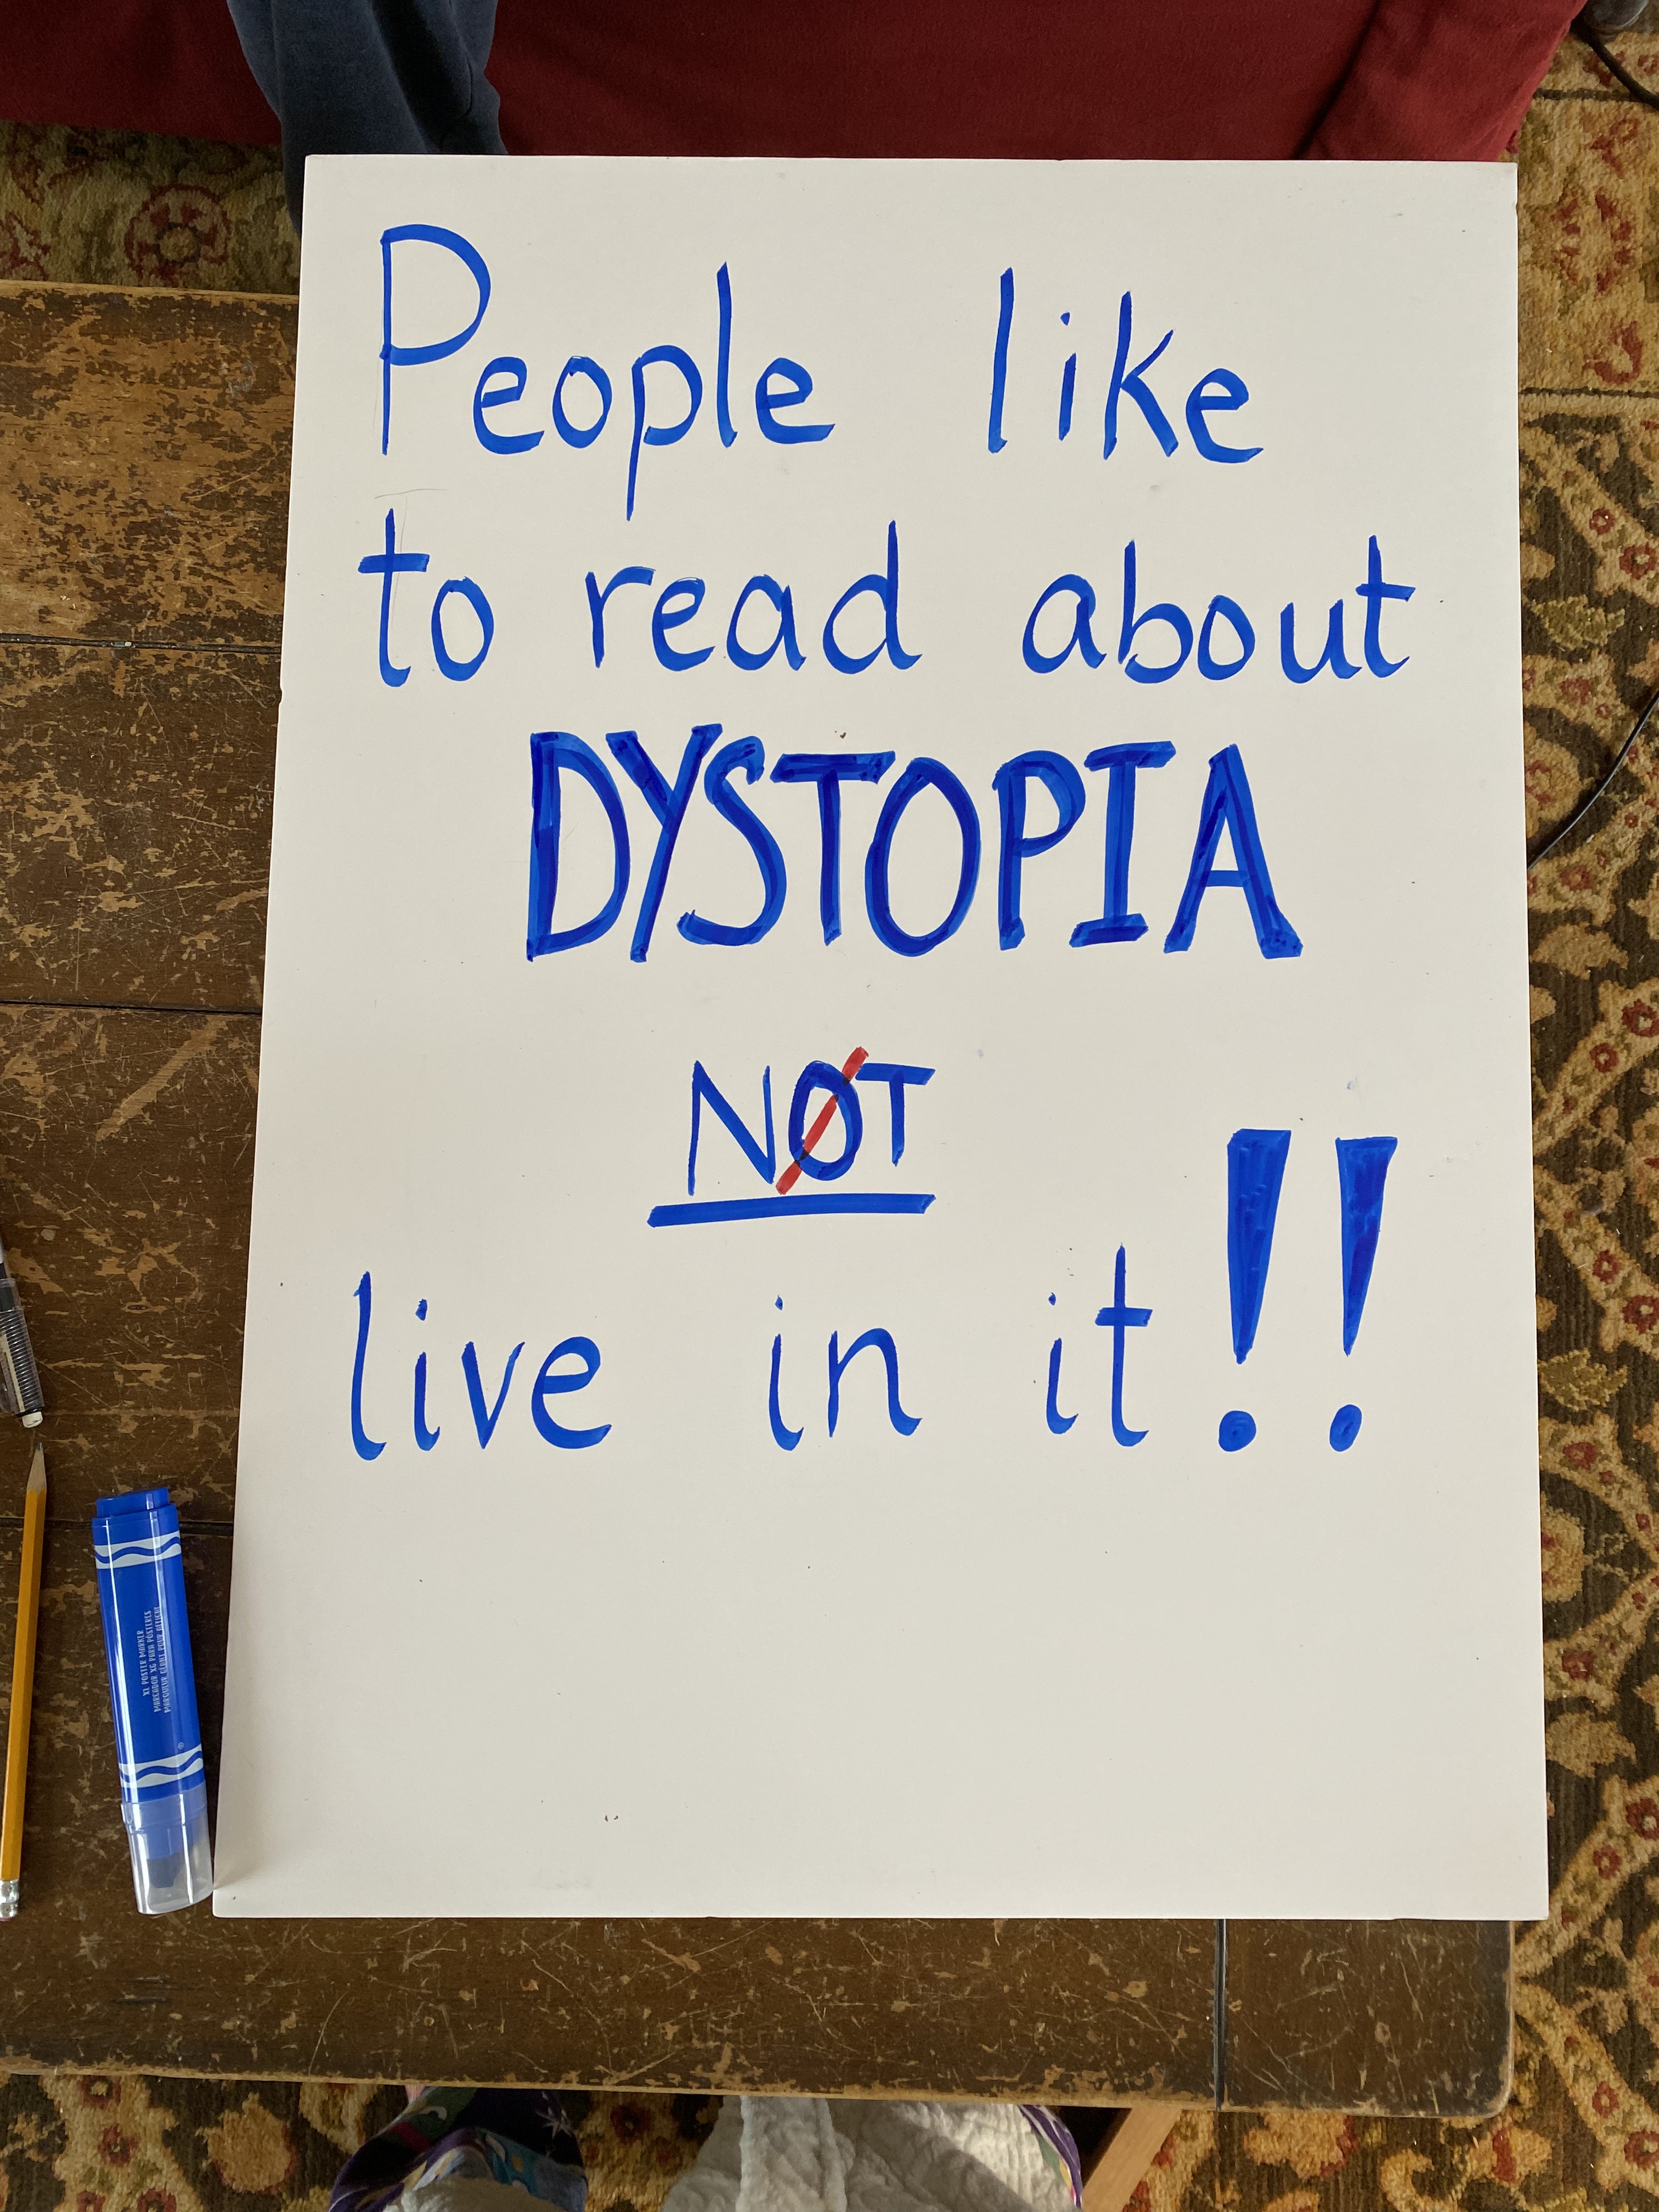 People like
to read about
DYSTOPIA
NOT
live in it!!
XL POSTER MARKER
MARCADOR XG PARA PÓSTERES
MARQUEUR GÉANT POUR AFFICHE